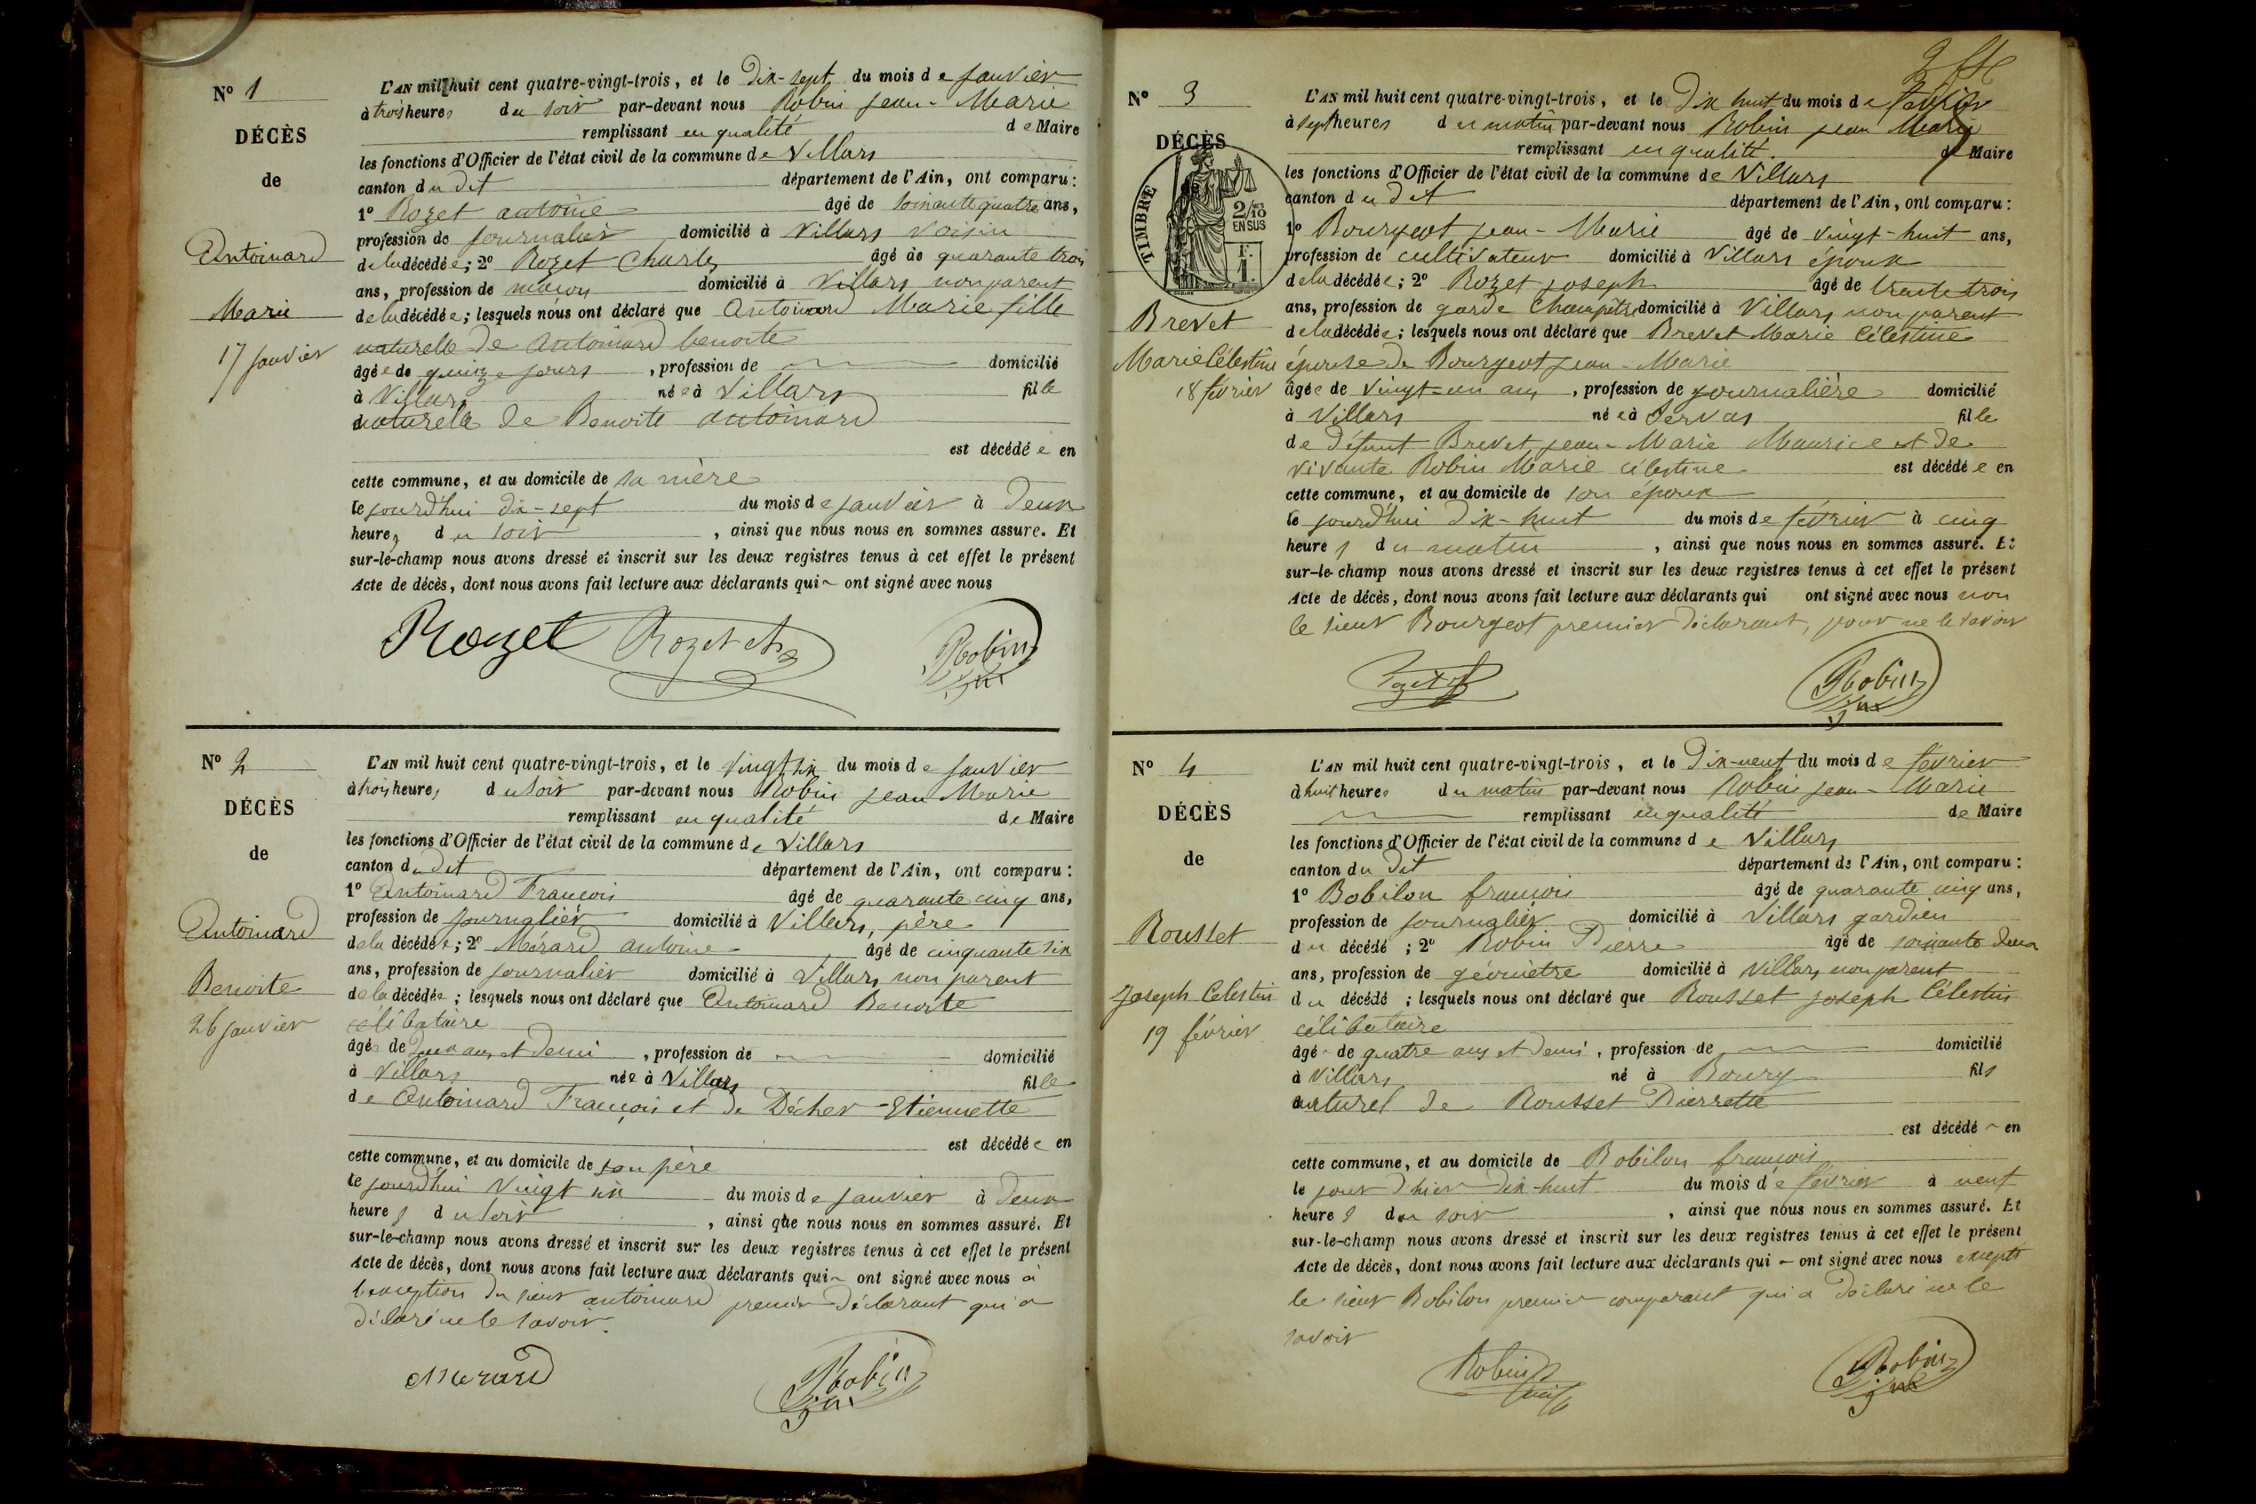 N° 1
DÉCÈS
de
Antoinard
Marie
17 janvier
L'AN mil huit cent quatre-vingt-trois, et le dix-sept du mois de janvier
à trois heures du soir par-devant nous Robin jean-Marie
remplissant en qualité de Maire
les fonctions d'Officier de l'état civil de la commune de Villars
canton du dit département de l'Ain, ont comparu :
1° Rozet antoine âgé de soixante quatre ans,
profession de journalier domicilié à Villars voisin
de la décédée ; 2° Rozet Charles âgé de quarante trois
ans, profession de maçon domicilié à Villars non parent
de la décédée ; lesquels nous ont déclaré que Antoinard Marie fille
naturelle de Antoinard benoite
âgée de quinze jours , profession de domicilié
à Villars née à Villars fille
naturelle de Benoite antoinard
est décédée en
cette commune, et au domicile de sa mère
le jourd'hui dix-sept du mois de janvier à deux
heures du soir , ainsi que nous nous en sommes assuré. Et
sur-le-champ nous avons dressé et inscrit sur les deux registres tenus à cet effet le présent
Acte de décès, dont nous avons fait lecture aux déclarants qui ont signé avec nous
Rozet Rozet ch Robin
N° 2
DÉCÈS
de
Antoinard
Benoite
26 janvier
L'AN mil huit cent quatre-vingt-trois, et le vingt six du mois de janvier
à trois heures du soir par-devant nous Robin jean Marie
remplissant en qualité de Maire
les fonctions d'Officier de l'état civil de la commune de Villars
canton du dit département de l'Ain, ont comparu :
1° Antoinard François âgé de quarante cinq ans,
profession de journalier domicilié à Villars, père
de la décédée ; 2° Mérard antoine âgé de cinquante six
ans, profession de journalier domicilié à Villars non parent
de la décédée ; lesquels nous ont déclaré que Antoinard Benoite
célibataire
âgée de deux ans et demi , profession de domicilié
à Villars née à Villars fille
de Antoinard François et de Décher Etiennette
est décédée en
cette commune, et au domicile de son père
le jourd'hui vingt six du mois de janvier à deux
heures du soir , ainsi que nous nous en sommes assuré. Et
sur-le-champ nous avons dressé et inscrit sur les deux registres tenus à cet effet le présent
Acte de décès, dont nous avons fait lecture aux déclarants qui ont signé avec nous à
l'exception du sieur antoinard premier déclarant qui a
déclaré ne le savoir.
Merard Robin
N° 3
DÉCÈS
TIMBRE
2/10 EN SUS
F. 1.
Brevet
Marie Célestine
18 février
L'AN mil huit cent quatre-vingt-trois, et le dix huit du mois de février
à sept heures du matin par-devant nous Robin jean Marie
remplissant en qualité de Maire
les fonctions d'Officier de l'état civil de la commune de Villars
canton du dit département de l'Ain, ont comparu :
1° Bourgeot jean-Marie âgé de vingt-huit ans,
profession de cultivateur domicilié à Villars époux
de la décédée ; 2° Rozet joseph âgé de trente trois
ans, profession de garde champêtre domicilié à Villars non parent
de la décédée ; lesquels nous ont déclaré que Brevet Marie Célestine
épouse de Bourgeot jean-Marie
âgée de vingt-un ans , profession de journalière domicilié
à Villars née à Servas fille
de défunt Brevet jean-Marie Maurice et de
vivante Robin Marie célestine est décédée en
cette commune, et au domicile de son époux
le jourd'hui dix-huit du mois de février à cinq
heures du matin , ainsi que nous nous en sommes assuré. Et
sur-le-champ nous avons dressé et inscrit sur les deux registres tenus à cet effet le présent
Acte de décès, dont nous avons fait lecture aux déclarants qui ont signé avec nous non
le sieur Bourgeot premier déclarant, pour ne le savoir
Rozet Robin
N° 4
DÉCÈS
de
Rousset
Joseph Célestin
19 février
L'AN mil huit cent quatre-vingt-trois, et le dix-neuf du mois de février
à huit heures du matin par-devant nous Robin jean-Marie
remplissant en qualité de Maire
les fonctions d'Officier de l'état civil de la commune de Villars
canton du dit département de l'Ain, ont comparu :
1° Bobilon françois âgé de quarante cinq ans,
profession de journalier domicilié à Villars gardien
du décédé ; 2° Robin Pierre âgé de soixante deux
ans, profession de géomètre domicilié à Villars non parent
du décédé ; lesquels nous ont déclaré que Rousset joseph Célestin
célibataire
âgé de quatre ans et demi , profession de domicilié
à Villars né à Bourg fils
naturel de Rousset Pierrette
est décédé en
cette commune, et au domicile de Bobilon françois
le jour d'hier dix-huit du mois de février à neuf
heures du soir , ainsi que nous nous en sommes assuré. Et
sur-le-champ nous avons dressé et inscrit sur les deux registres tenus à cet effet le présent
Acte de décès, dont nous avons fait lecture aux déclarants qui ont signé avec nous excepté
le sieur Bobilon premier comparant qui a déclaré ne le
savoir
Robin Robin